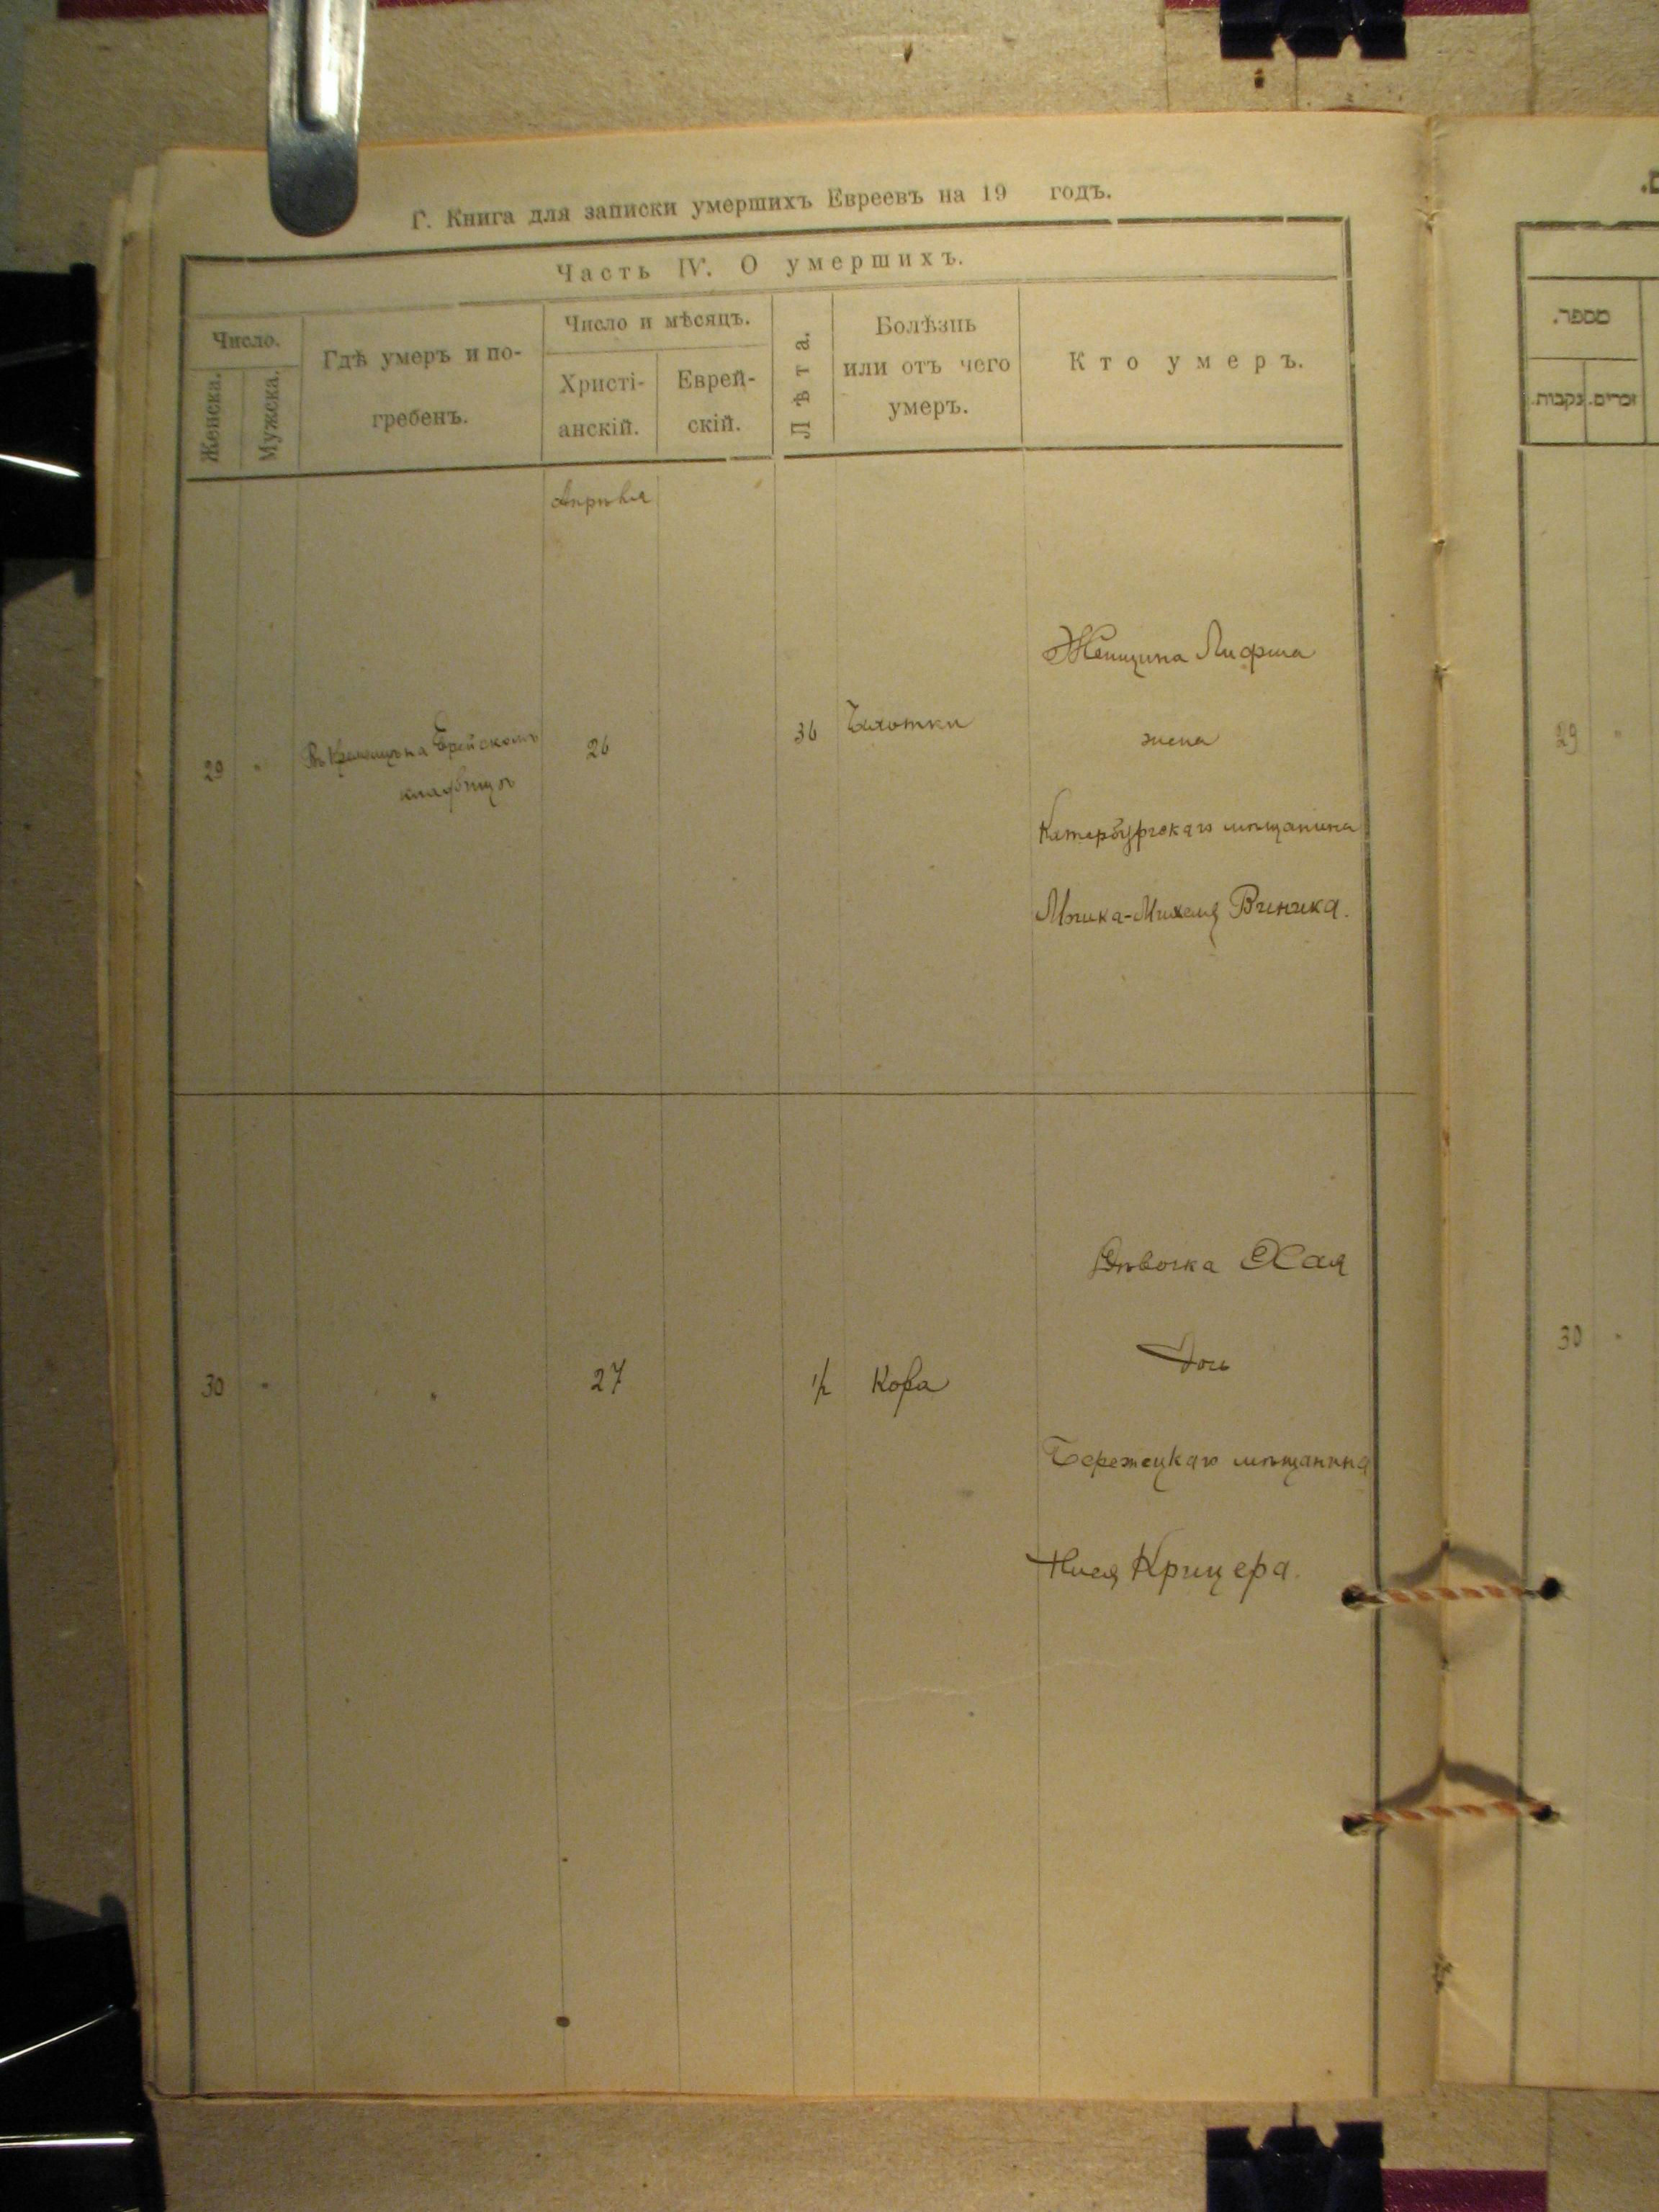 Г. Книга для записки умершихъ Евреевъ на 19 годъ.
Часть IV. О умершихъ.
Число.
Женска.
Мужска.
Гдѣ умеръ и по-
гребенъ.
Число и мѣсяцъ.
Христі-
анскій.
Еврей-
скій.
Лѣта.
Болѣзнь
или отъ чего
умеръ.
Кто умеръ.
Апрѣля
29
Въ Кременцѣ на Еврейскомъ
кладбищѣ
26
36
Чахотки
Женщина Лифша
жена
Катербургскаго мѣщанина
Мошка-Михеля Виника.
30
27
1/2
Кора
Дѣвочка Хая
дочь
Бережецкаго мѣщанина
Нисея Крицера.
מספר.
נקבות.
זכרים.
29
30